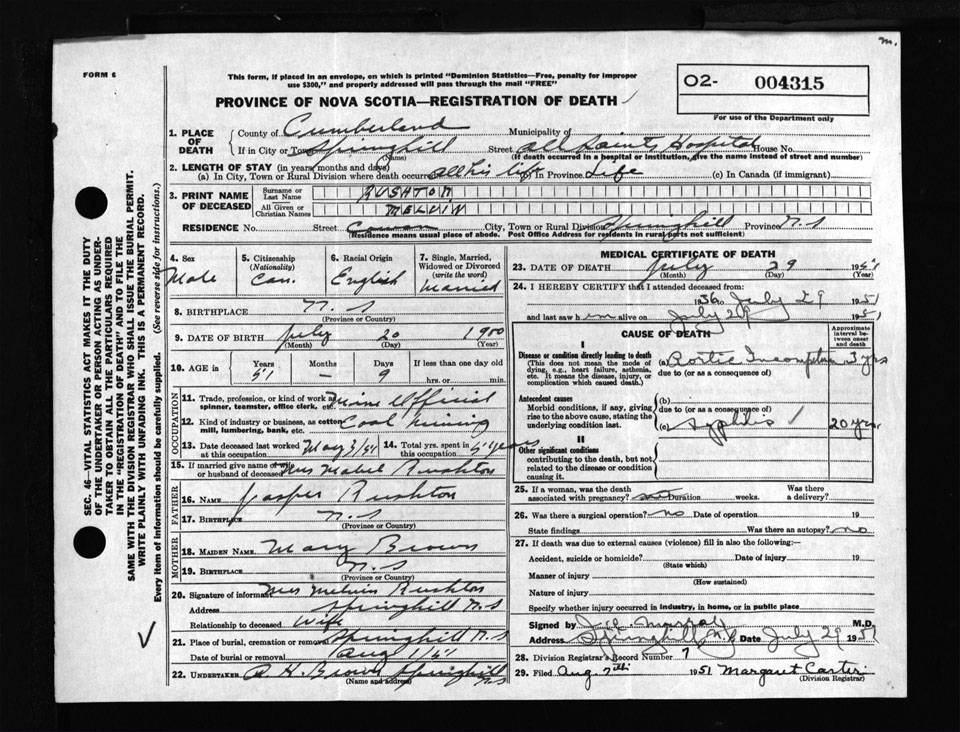 m.
FORM 6
This form, if placed in an envelope, on which is printed "Dominion Statistics—Free, penalty for improper
use $300," and properly addressed will pass through the mail "FREE"
O2- 004315
For use of the Department only
PROVINCE OF NOVA SCOTIA—REGISTRATION OF DEATH
SEC. 46—VITAL STATISTICS ACT MAKES IT THE DUTY
OF THE UNDERTAKER OR PERSON ACTING AS UNDER-
TAKER TO OBTAIN ALL THE PARTICULARS REQUIRED
IN THE "REGISTRATION OF DEATH" AND TO FILE THE
SAME WITH THE DIVISION REGISTRAR WHO SHALL ISSUE THE BURIAL PERMIT.
WRITE PLAINLY WITH UNFADING INK. THIS IS A PERMANENT RECORD.
Every item of information should be carefully supplied. (See reverse side for instructions.)
1. PLACE OF DEATH
County of Cumberland Municipality of
If in City or Town Springhill Street All Saints Hospital House No.
(Name) (If death occurred in a hospital or institution, give the name instead of street and number)
2. LENGTH OF STAY (in years, months and days)
(a) In City, Town or Rural Division where death occurred all his life In Province Life (c) In Canada (if immigrant)
3. PRINT NAME OF DECEASED
Surname or Last Name RUSHTON
All Given or Christian Names MELVIN
RESIDENCE No. Street Cowan City, Town or Rural Division Springhill Province N.S
(Residence means usual place of abode. Post Office Address for residents in rural parts not sufficient)
4. Sex Male
5. Citizenship (Nationality) Can.
6. Racial Origin English
7. Single, Married, Widowed or Divorced (write the word) Married
8. BIRTHPLACE N.S
(Province or Country)
9. DATE OF BIRTH July 20 1900
(Month) (Day) (Year)
10. AGE in Years 51 Months — Days 9 If less than one day old
hrs. or min.
OCCUPATION
11. Trade, profession, or kind of work as spinner, teamster, office clerk, etc. Mine Official
12. Kind of industry or business, as cotton mill, lumbering, bank, etc. Coal mining
13. Date deceased last worked at this occupation May 3/51 14. Total yrs. spent in this occupation years
15. If married give name of wife or husband of deceased Mrs Mabel Rushton
FATHER
16. NAME Jasper Rushton
17. BIRTHPLACE N.S
(Province or Country)
MOTHER
18. MAIDEN NAME Mary Brown
19. BIRTHPLACE N.S
(Province or Country)
20. Signature of informant Mrs Melvin Rushton
Address Springhill N.S
Relationship to deceased Wife
21. Place of burial, cremation or removal Springhill N.S
Date of burial or removal Aug 1/51
22. UNDERTAKER A. H. Brown Springhill N.S
(Name and address)
MEDICAL CERTIFICATE OF DEATH
23. DATE OF DEATH July 29 1951
(Month) (Day) (Year)
24. I HEREBY CERTIFY that I attended deceased from:
1936 to July 29 1951
and last saw him alive on July 29 1951
CAUSE OF DEATH
Approximate interval between onset and death
I
Disease or condition directly leading to death
(This does not mean the mode of dying, e.g., heart failure, asthenia, etc. It means the disease, injury, or complication which caused death.)
(a) Aortic 3 yrs
due to (or as a consequence of)
Antecedent causes
Morbid conditions, if any, giving rise to the above cause, stating the underlying condition last.
(b)
due to (or as a consequence of)
(c) Syphilis 20 years
II
Other significant conditions
contributing to the death, but not related to the disease or condition causing it.
25. If a woman, was the death associated with pregnancy? Duration weeks. Was there a delivery?
26. Was there a surgical operation? no Date of operation 19
State findings Was there an autopsy? no
27. If death was due to external causes (violence) fill in also the following:—
Accident, suicide or homicide? Date of injury 19
(State which)
Manner of injury
(How sustained)
Nature of injury
Specify whether injury occurred in industry, in home, or in public place
Signed by M.D.
Address Springhill N.S Date July 29 1951
28. Division Registrar's Record Number 7
29. Filed Aug. 7th 1951 Margaret Carter
(Division Registrar)